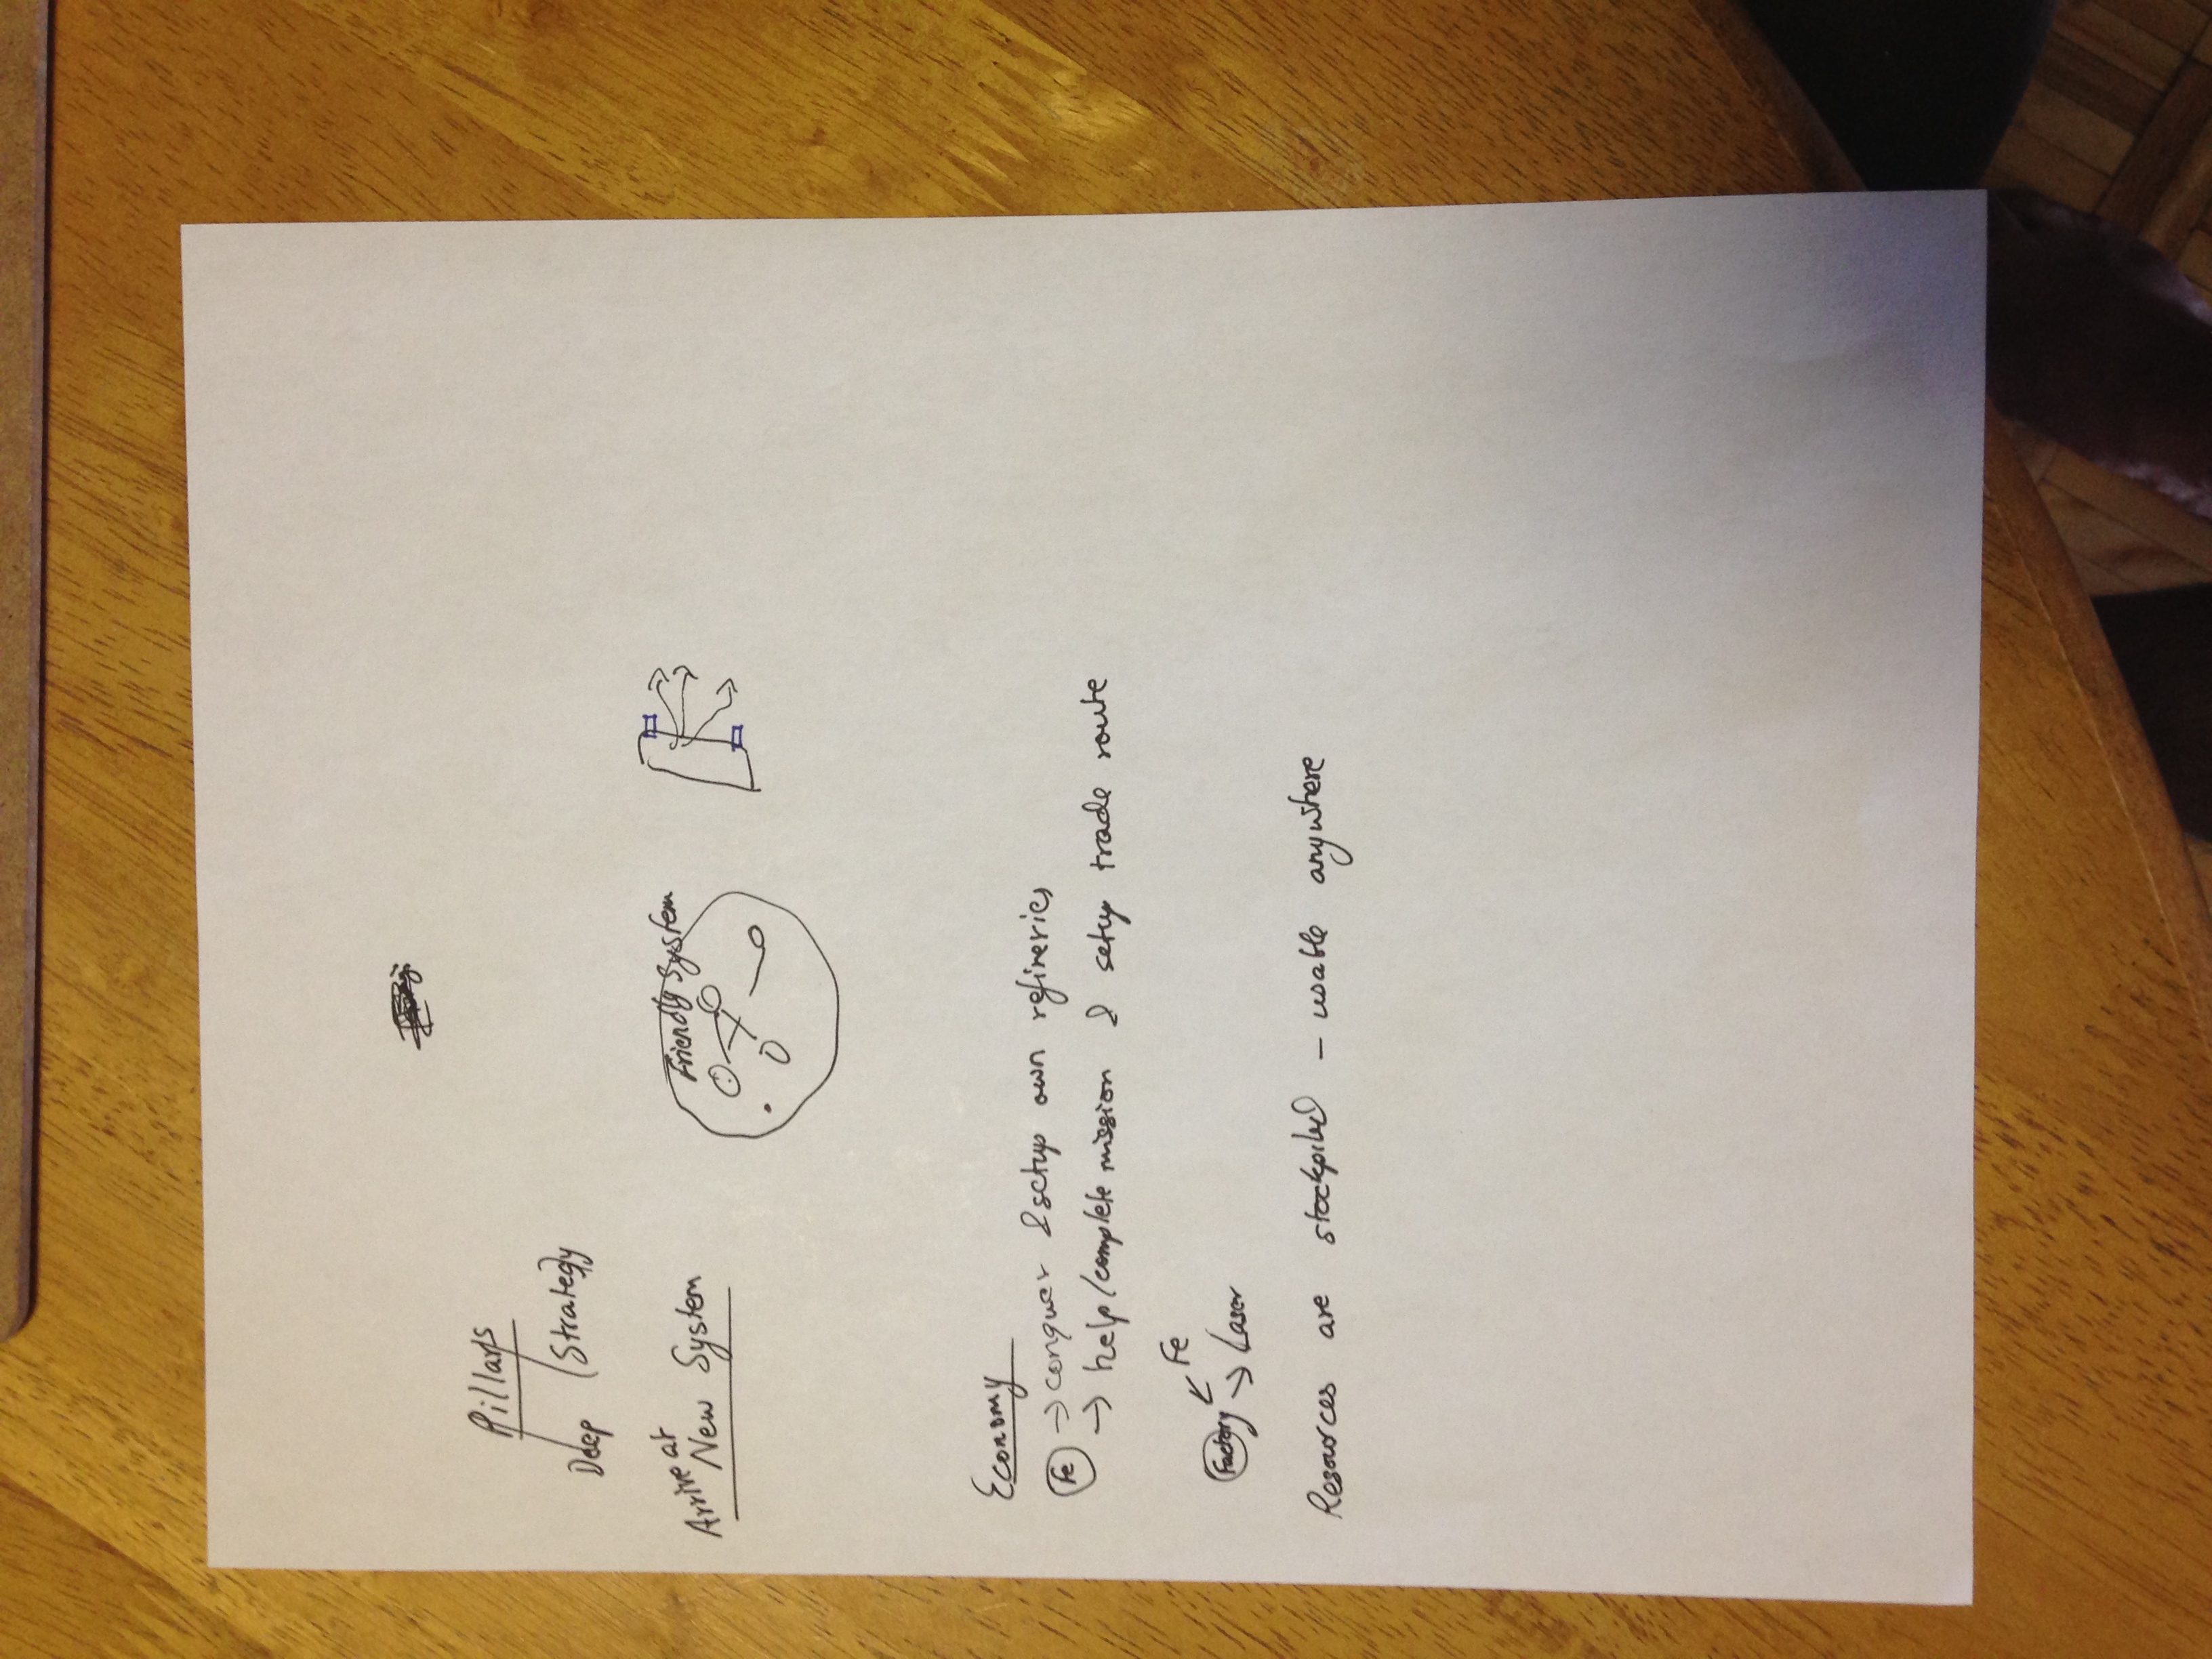 Pillars
Deep Strategy
Arrive at
New System
Friendly System
Economy
Fe → conquer & setup own refineries
→ help/complete mission & setup trade route
Fe
Factory
→ Laser
Resources are stockpiled - usable anywhere